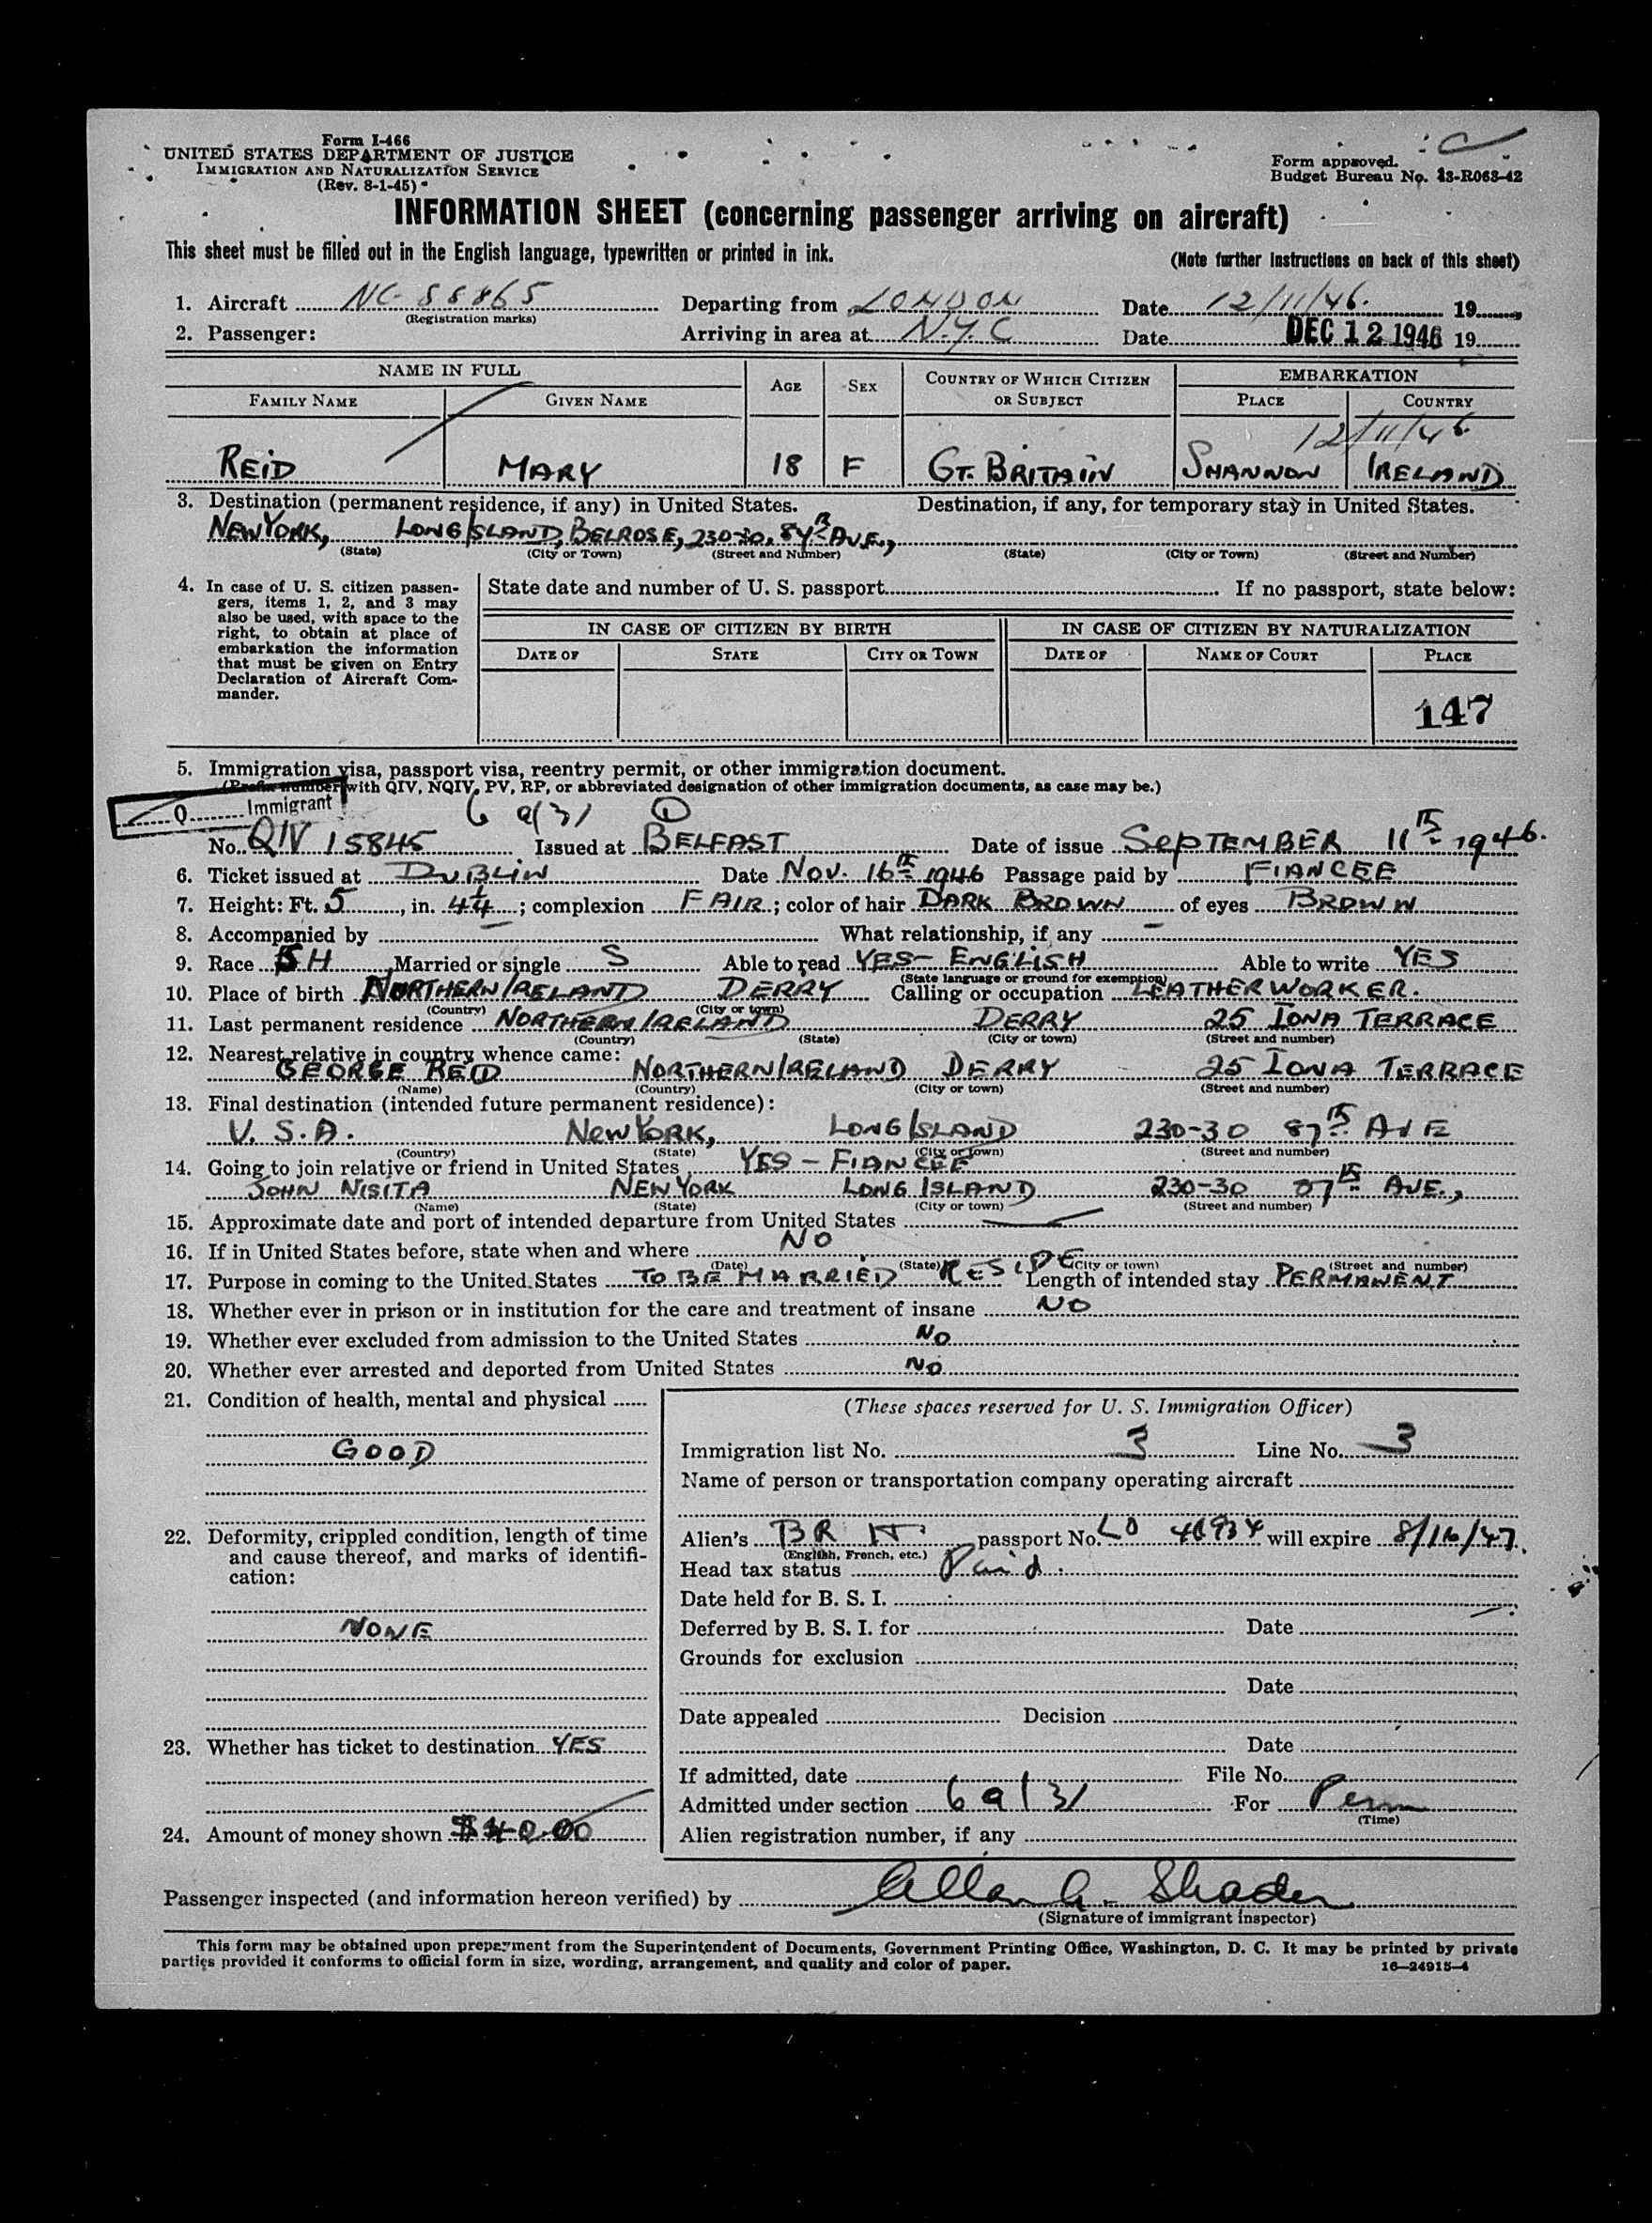 Form I-466
UNITED STATES DEPARTMENT OF JUSTICE
IMMIGRATION AND NATURALIZATION SERVICE
(Rev. 8-1-45)
C
Form approved.
Budget Bureau No. 43-R063-42
INFORMATION SHEET (concerning passenger arriving on aircraft)
This sheet must be filled out in the English language, typewritten or printed in ink. (Note further instructions on back of this sheet)
1. Aircraft NC-88865 Departing from LONDON Date 12/11/46. 19
(Registration marks)
2. Passenger: Arriving in area at N.Y.C Date DEC 12 1946 19
NAME IN FULL AGE SEX COUNTRY OF WHICH CITIZEN OR SUBJECT EMBARKATION
FAMILY NAME GIVEN NAME PLACE COUNTRY
12/11/46.
REID MARY 18 F GT. BRITAIN SHANNON IRELAND
3. Destination (permanent residence, if any) in United States. Destination, if any, for temporary stay in United States.
NEW YORK, LONG ISLAND, BELROSE, 230-30, 87TH AVE.,
(State) (City or Town) (Street and Number) (State) (City or Town) (Street and Number)
4. In case of U. S. citizen passengers, items 1, 2, and 3 may also be used, with space to the right, to obtain at place of embarkation the information that must be given on Entry Declaration of Aircraft Commander.
State date and number of U. S. passport If no passport, state below:
IN CASE OF CITIZEN BY BIRTH IN CASE OF CITIZEN BY NATURALIZATION
DATE OF STATE CITY OR TOWN DATE OF NAME OF COURT PLACE
147
5. Immigration visa, passport visa, reentry permit, or other immigration document.
(Prefix number with QIV, NQIV, PV, RP, or abbreviated designation of other immigration documents, as case may be.)
Q Immigrant 6 a/31
No. QIV 15845 Issued at BELFAST Date of issue SEPTEMBER 11TH 1946.
6. Ticket issued at DUBLIN Date NOV. 16TH 1946 Passage paid by FIANCEE
7. Height: Ft. 5, in. 4 1/4; complexion FAIR; color of hair DARK BROWN of eyes BROWN
8. Accompanied by – What relationship, if any –
9. Race SH Married or single S Able to read YES- ENGLISH Able to write YES
(State language or ground for exemption)
10. Place of birth NORTHERN IRELAND DERRY Calling or occupation LEATHER WORKER.
(Country) (City or town)
11. Last permanent residence NORTHERN IRELAND DERRY 25 IONA TERRACE
(Country) (State) (City or town) (Street and number)
12. Nearest relative in country whence came:
GEORGE REID NORTHERN IRELAND DERRY 25 IONA TERRACE
(Name) (Country) (City or town) (Street and number)
13. Final destination (intended future permanent residence):
U.S.A. NEW YORK, LONG ISLAND 230-30 87TH AVE
(Country) (State) (City or town) (Street and number)
14. Going to join relative or friend in United States YES – FIANCEE
JOHN NISITA NEW YORK LONG ISLAND 230-30 87TH AVE.,
(Name) (State) (City or town) (Street and number)
15. Approximate date and port of intended departure from United States
16. If in United States before, state when and where NO
(Date) (State) (City or town) (Street and number)
17. Purpose in coming to the United States TO BE MARRIED RESIDE Length of intended stay PERMANENT
18. Whether ever in prison or in institution for the care and treatment of insane NO
19. Whether ever excluded from admission to the United States NO
20. Whether ever arrested and deported from United States NO
21. Condition of health, mental and physical
GOOD
22. Deformity, crippled condition, length of time and cause thereof, and marks of identification:
NONE
23. Whether has ticket to destination YES
24. Amount of money shown $40.00
(These spaces reserved for U. S. Immigration Officer)
Immigration list No. 3 Line No. 3
Name of person or transportation company operating aircraft
Alien's BRIT passport No. LO will expire 8/16/47.
(English, French, etc.)
Head tax status Paid.
Date held for B. S. I.
Deferred by B. S. I. for Date
Grounds for exclusion
Date
Date appealed Decision
Date
If admitted, date File No.
Admitted under section 6 a/31 For Perm
(Time)
Alien registration number, if any
Passenger inspected (and information hereon verified) by Allan G. Shader
(Signature of immigrant inspector)
This form may be obtained upon prepayment from the Superintendent of Documents, Government Printing Office, Washington, D. C. It may be printed by private
parties provided it conforms to official form in size, wording, arrangement, and quality and color of paper. 16—24915-4